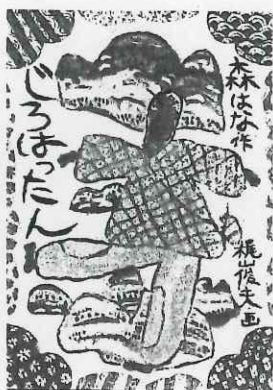 森はな作
じろはったん
梶山俊夫画